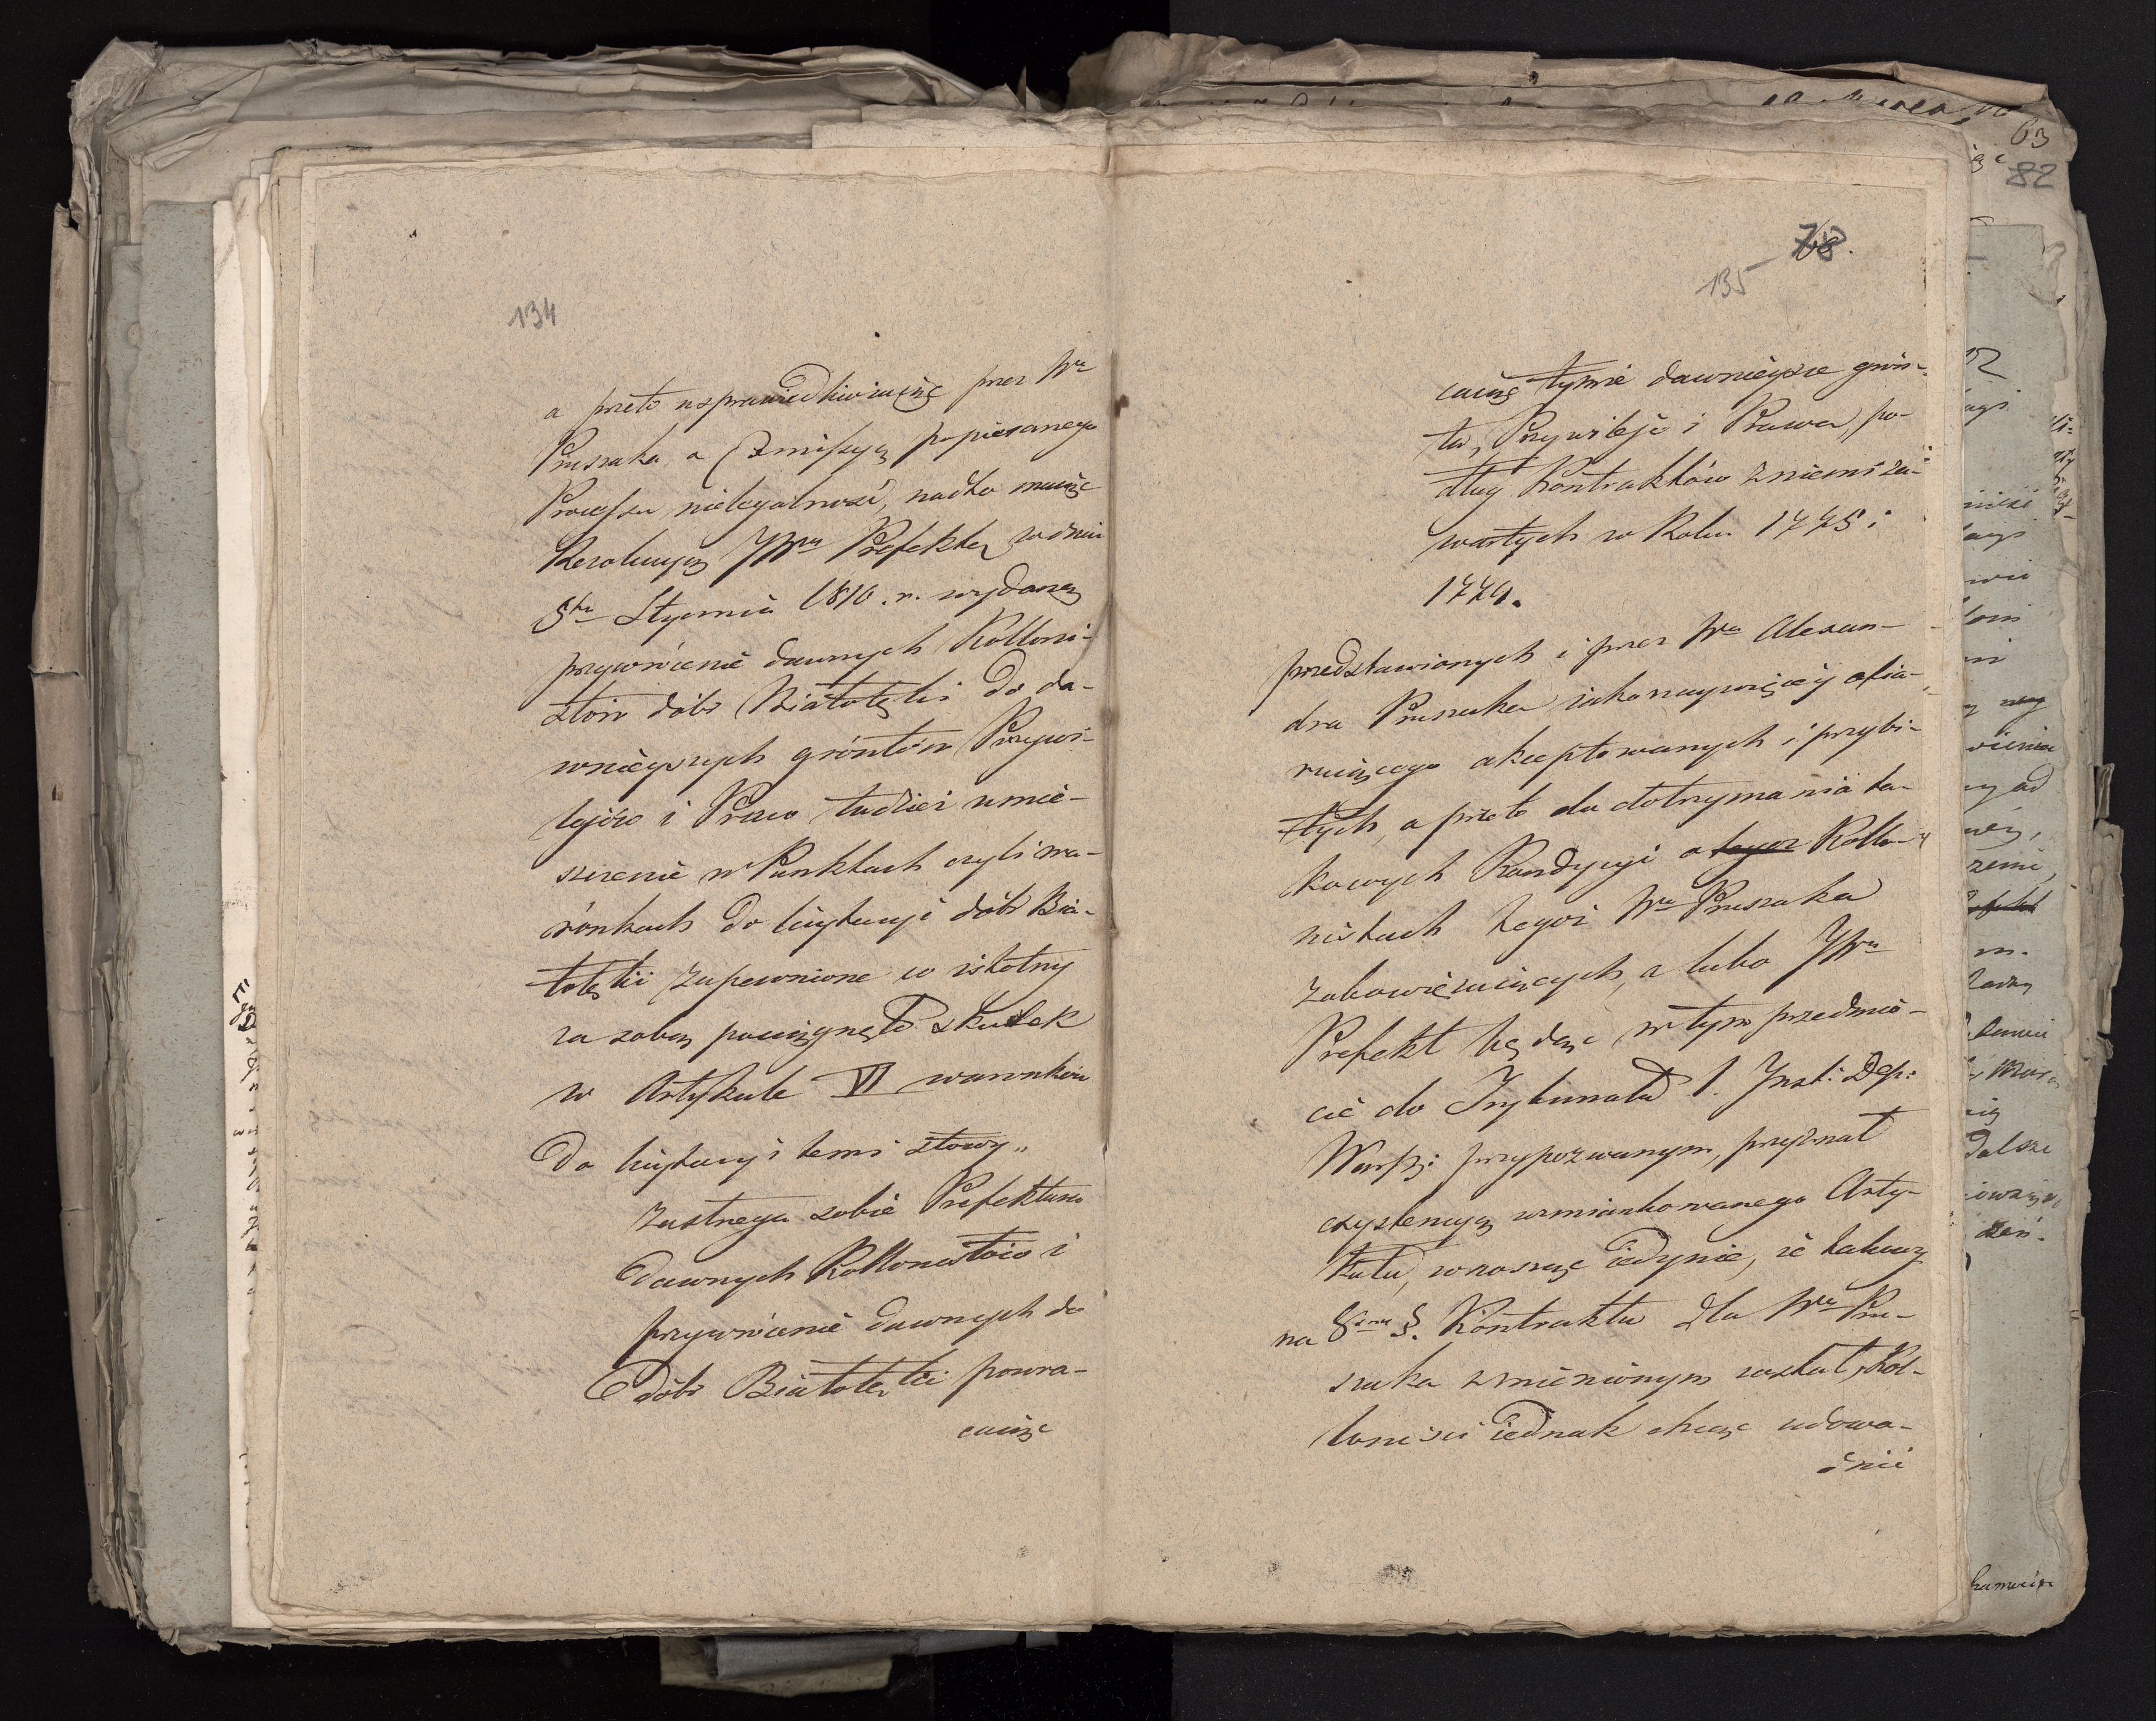 134
a przeto usprawiedliwiaiąc przez Wo
Pruszaka, a Omissyą popieranego
Processu nielegalność, nadto maiąc
Rezolucyą JWgo Prefekta w dniu
5ta Stycznia 1810. r. wydaną
przywrócenie dawnych Kolloni-
stów dóbr Białołęki do da-
wnieyszych gróntów Przywi-
lejów i Praw tudzież umie-
szczenie w Punktach czyli wa-
rónkach do licytacyi dóbr Bia-
łołęki zapewnione w istotny
za sobą pociągnęło skutek
w Artykule VI warunków
do licytacyi temi słowy „
zastrzega sobie Prefektura
dawnych Kollonistów i
przywrócenie dawnych do
dóbr Białołęki powra-
caiąc
78.
135
caiąc tymże dawnieysze grón-
ta, Przywileje i Prawa, po-
dług Kontraktów z niemi za-
wartych w Roku 1775 i
1779.
przedstawionych i przez Wo Alexan-
dra Pruszaka iako naywięcéy ofia-
ruiącego akceptowanych i przybi-
tych, a przeto do dotrzymania ta-
kowych Kondycyi o Kollo-
nistach tegoż Wo Pruszaka
zobowięzuiących, a lubo JWny
Prefekt będąc w tym przedmio-
cie do Trybunału 1. Inst: Dep:
Warsz: przypozwanym, przyznał
exystencyą wzmiankowanego Arty-
kułu, wnosząc iedynie, że takowy
na 8ym §. Kontraktu dla Wo Pru-
szaka zmienionym został, Kol-
loniści iednak chcąc udowo-
dnić
63
82